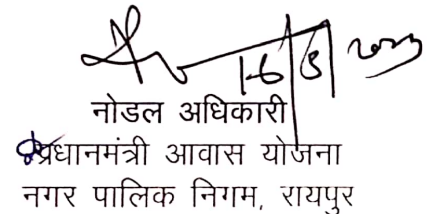 16/5/2023
नोडल अधिकारी
प्रधानमंत्री आवास योजना
नगर पालिक निगम, रायपुर